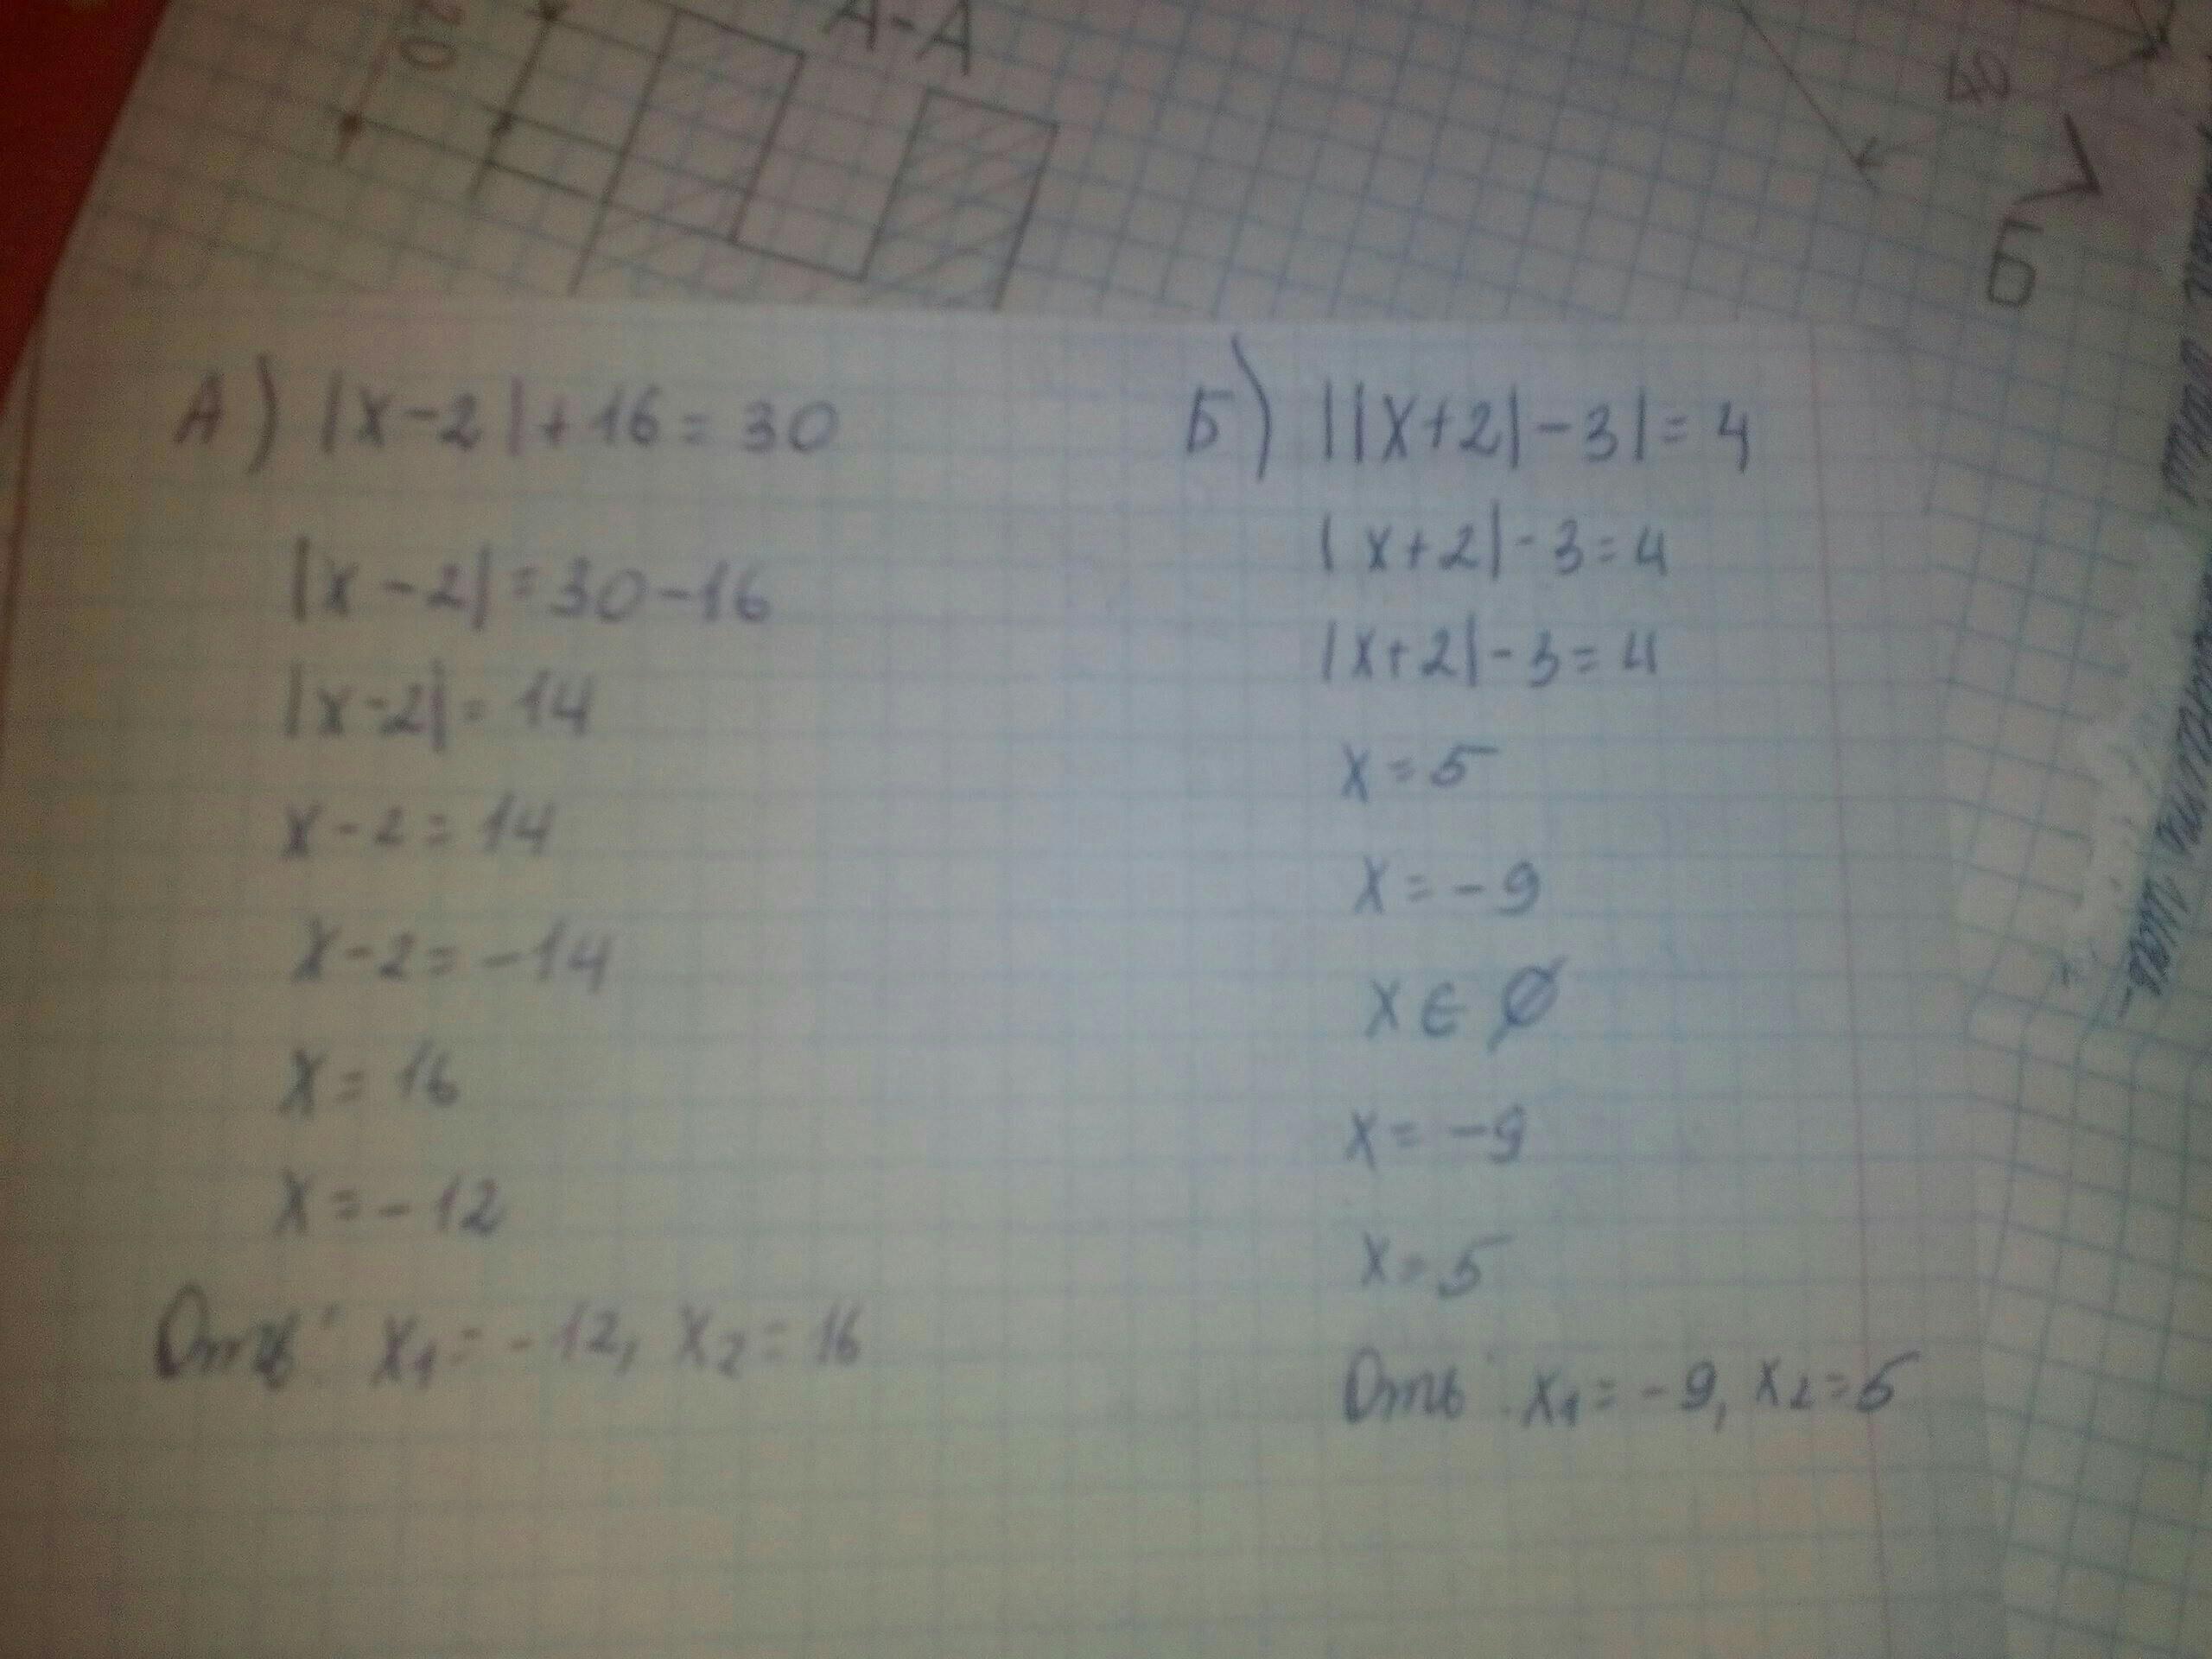 20
А-А
40
Б
А) |x-2|+16=30
|x-2|=30-16
|x-2|=14
x-2=14
x-2=-14
x=16
x=-12
Отв: x1=-12, x2=16
Б) ||x+2|-3|=4
|x+2|-3=4
|x+2|-3=4
x=5
x=-9
x∈∅
x=-9
x=5
Отв: x1=-9, x2=5